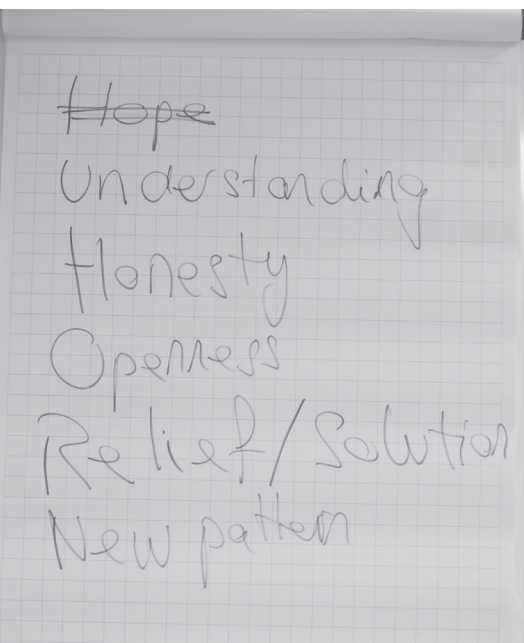 Hope
Understanding
Honesty
Openness
Relief/Solution
New pattern